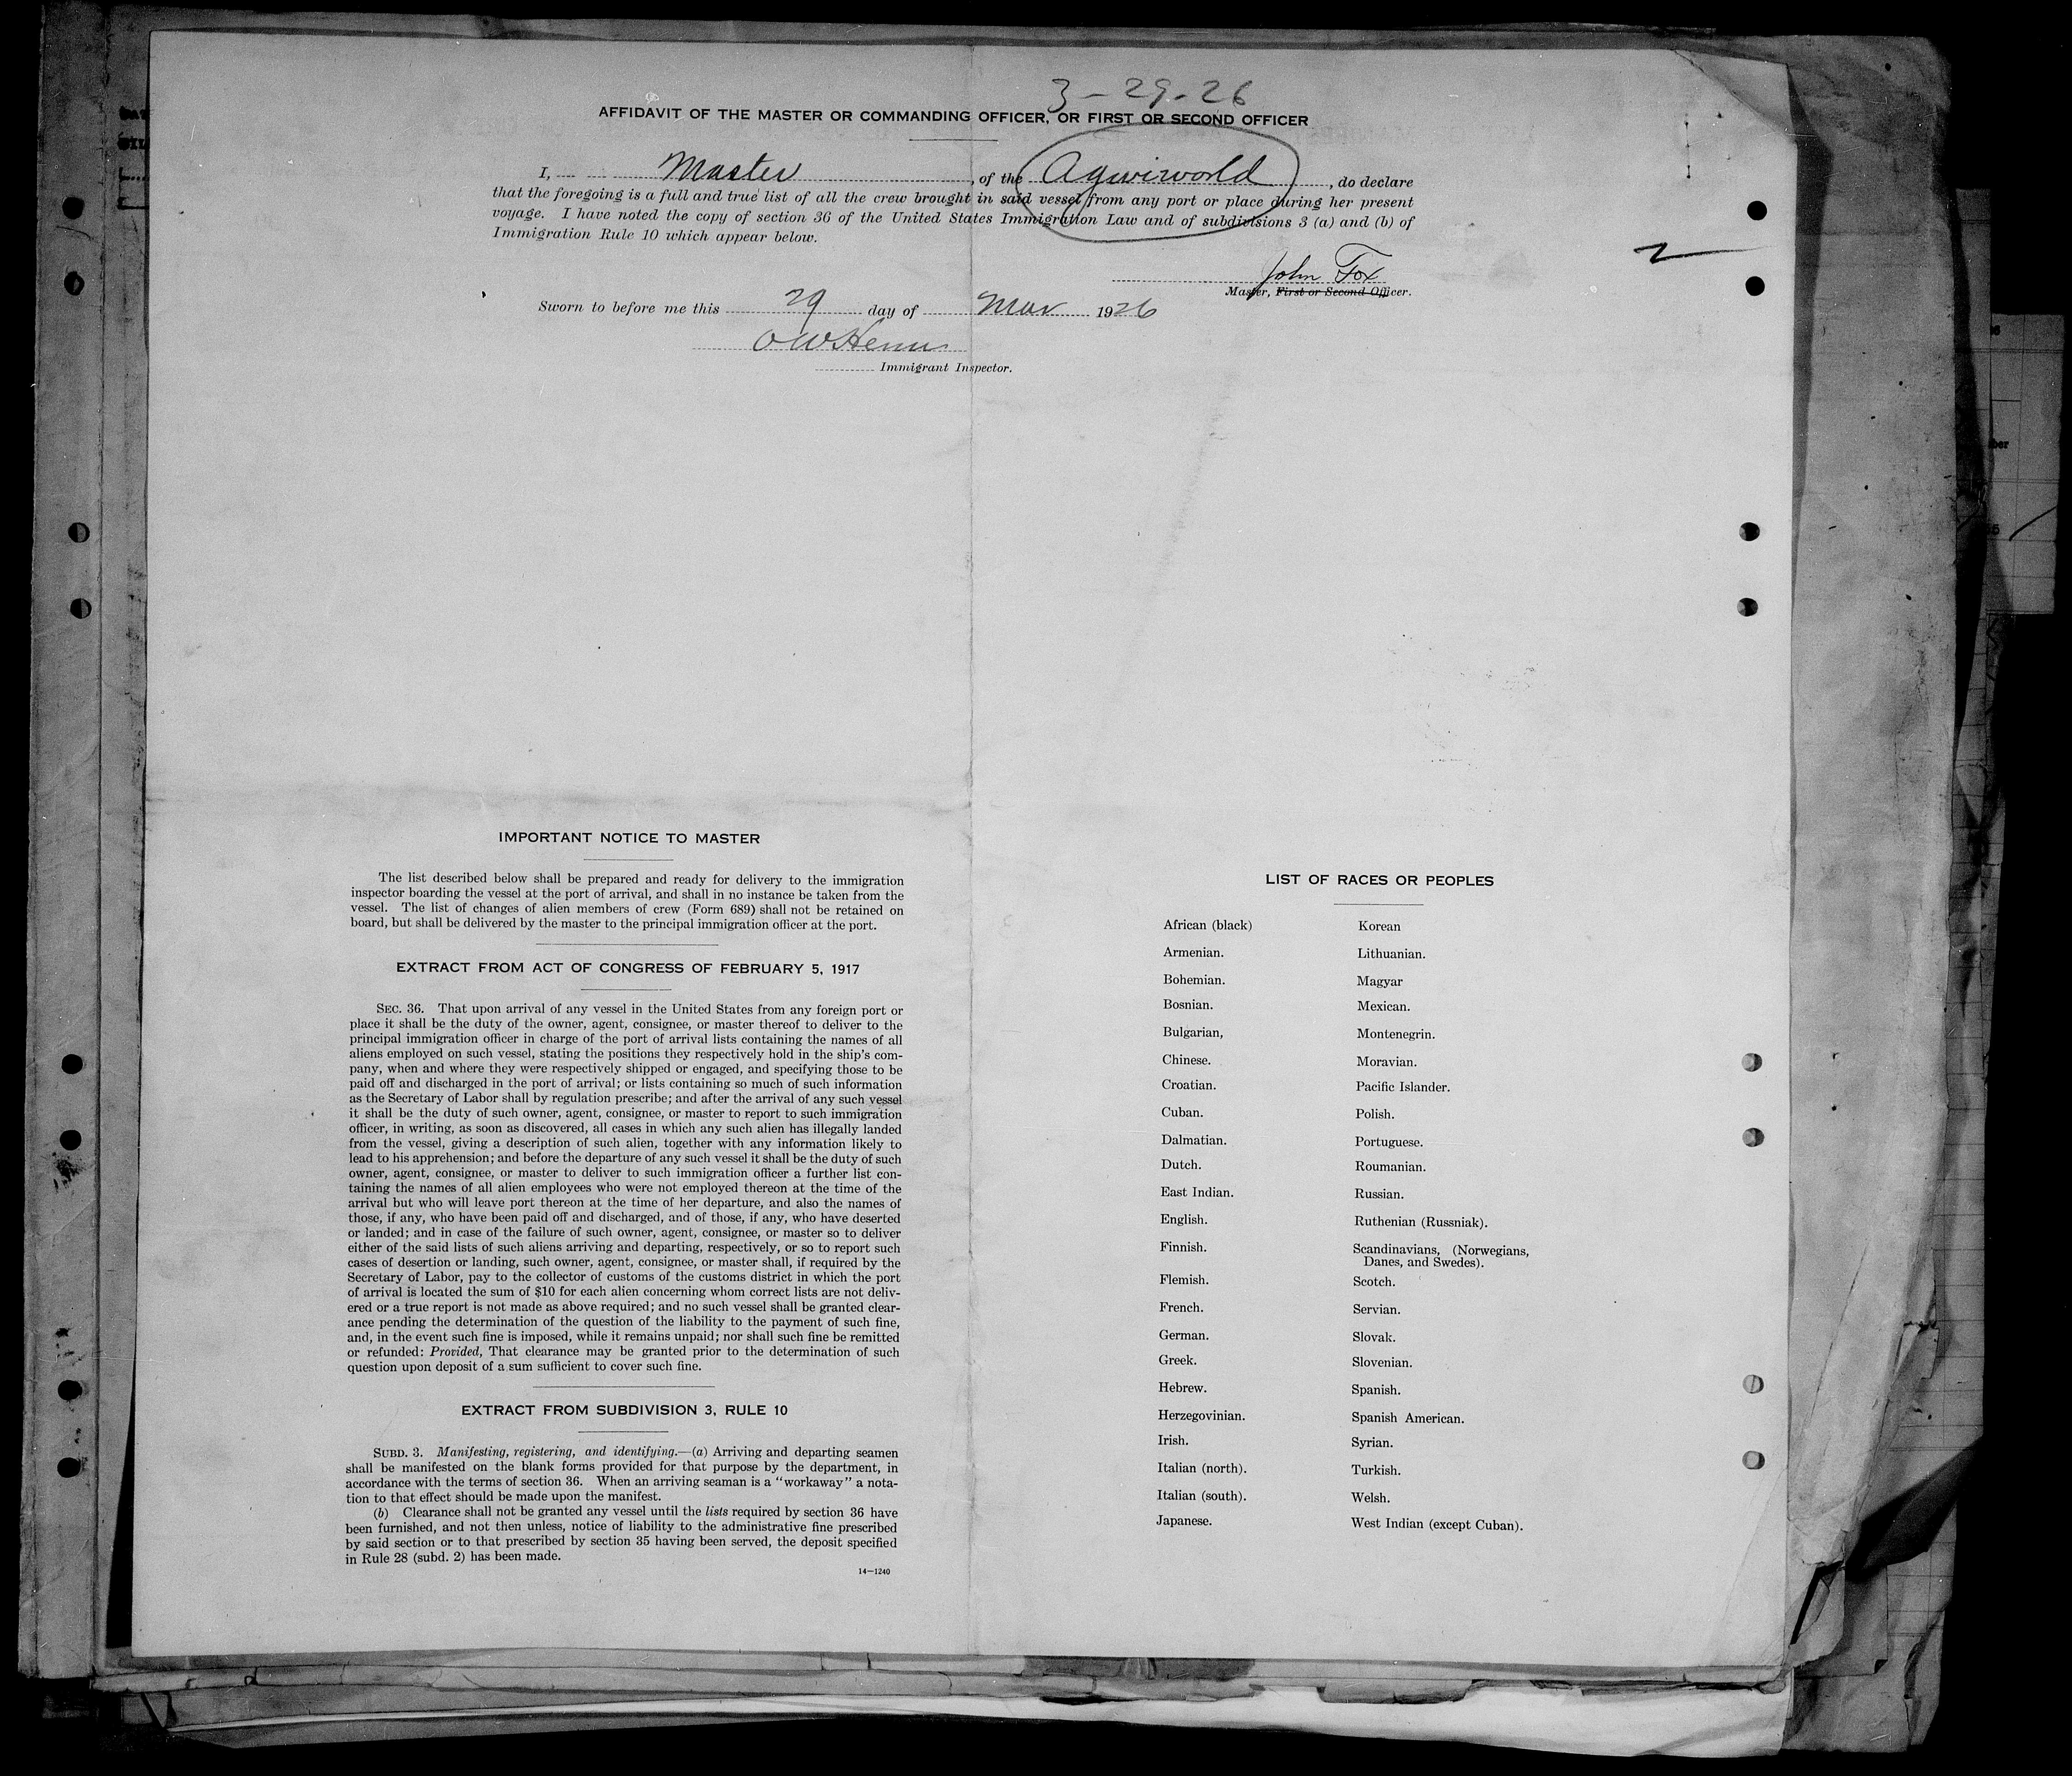 3-29-26
AFFIDAVIT OF THE MASTER OR COMMANDING OFFICER, OR FIRST OR SECOND OFFICER
I, Master, of the Agwiworld, do declare
that the foregoing is a full and true list of all the crew brought in said vessel from any port or place during her present
voyage. I have noted the copy of section 36 of the United States Immigration Law and of subdivisions 3 (a) and (b) of
Immigration Rule 10 which appear below.
John Fox
Master, First or Second Officer.
Sworn to before me this 29 day of Mar 1926
Immigrant Inspector.
IMPORTANT NOTICE TO MASTER
The list described below shall be prepared and ready for delivery to the immigration
inspector boarding the vessel at the port of arrival, and shall in no instance be taken from the
vessel. The list of changes of alien members of crew (Form 689) shall not be retained on
board, but shall be delivered by the master to the principal immigration officer at the port.
EXTRACT FROM ACT OF CONGRESS OF FEBRUARY 5, 1917
SEC. 36. That upon arrival of any vessel in the United States from any foreign port or
place it shall be the duty of the owner, agent, consignee, or master thereof to deliver to the
principal immigration officer in charge of the port of arrival lists containing the names of all
aliens employed on such vessel, stating the positions they respectively hold in the ship's com-
pany, when and where they were respectively shipped or engaged, and specifying those to be
paid off and discharged in the port of arrival; or lists containing so much of such information
as the Secretary of Labor shall by regulation prescribe; and after the arrival of any such vessel
it shall be the duty of such owner, agent, consignee, or master to report to such immigration
officer, in writing, as soon as discovered, all cases in which any such alien has illegally landed
from the vessel, giving a description of such alien, together with any information likely to
lead to his apprehension; and before the departure of any such vessel it shall be the duty of such
owner, agent, consignee, or master to deliver to such immigration officer a further list con-
taining the names of all alien employees who were not employed thereon at the time of the
arrival but who will leave port thereon at the time of her departure, and also the names of
those, if any, who have been paid off and discharged, and of those, if any, who have deserted
or landed; and in case of the failure of such owner, agent, consignee, or master so to deliver
either of the said lists of such aliens arriving and departing, respectively, or so to report such
cases of desertion or landing, such owner, agent, consignee, or master shall, if required by the
Secretary of Labor, pay to the collector of customs of the customs district in which the port
of arrival is located the sum of $10 for each alien concerning whom correct lists are not deliv-
ered or a true report is not made as above required; and no such vessel shall be granted clear-
ance pending the determination of the question of the liability to the payment of such fine,
and, in the event such fine is imposed, while it remains unpaid; nor shall such fine be remitted
or refunded: Provided, That clearance may be granted prior to the determination of such
question upon deposit of a sum sufficient to cover such fine.
EXTRACT FROM SUBDIVISION 3, RULE 10
SUBD. 3. Manifesting, registering, and identifying.—(a) Arriving and departing seamen
shall be manifested on the blank forms provided for that purpose by the department, in
accordance with the terms of section 36. When an arriving seaman is a "workaway" a nota-
tion to that effect should be made upon the manifest.
(b) Clearance shall not be granted any vessel until the lists required by section 36 have
been furnished, and not then unless, notice of liability to the administrative fine prescribed
by said section or to that prescribed by section 35 having been served, the deposit specified
in Rule 28 (subd. 2) has been made.
14—1240
LIST OF RACES OR PEOPLES
African (black)
Armenian.
Bohemian.
Bosnian.
Bulgarian,
Chinese.
Croatian.
Cuban.
Dalmatian.
Dutch.
East Indian.
English.
Finnish.
Flemish.
French.
German.
Greek.
Hebrew.
Herzegovinian.
Irish.
Italian (north).
Italian (south).
Japanese.
Korean
Lithuanian.
Magyar
Mexican.
Montenegrin.
Moravian.
Pacific Islander.
Polish.
Portuguese.
Roumanian.
Russian.
Ruthenian (Russniak).
Scandinavians, (Norwegians,
Danes, and Swedes).
Scotch.
Servian.
Slovak.
Slovenian.
Spanish.
Spanish American.
Syrian.
Turkish.
Welsh.
West Indian (except Cuban).